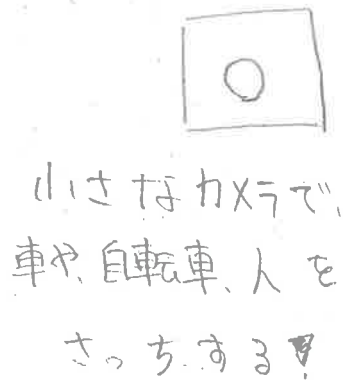 小さなカメラで、
車や、自転車、人を
さっちする!